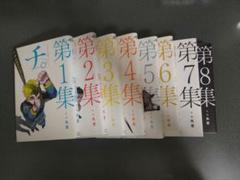 チ。
第1集
第2集
第3集
第4集
第5集
第6集
第7集
第8集